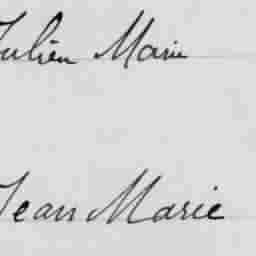 Julien Marie
Jean Marie